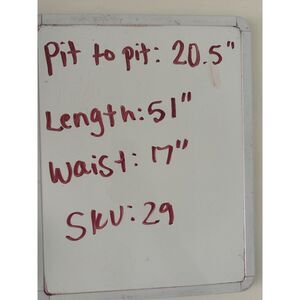 Pit to pit: 20.5"
Length: 51"
Waist: 17"
SKU: 29